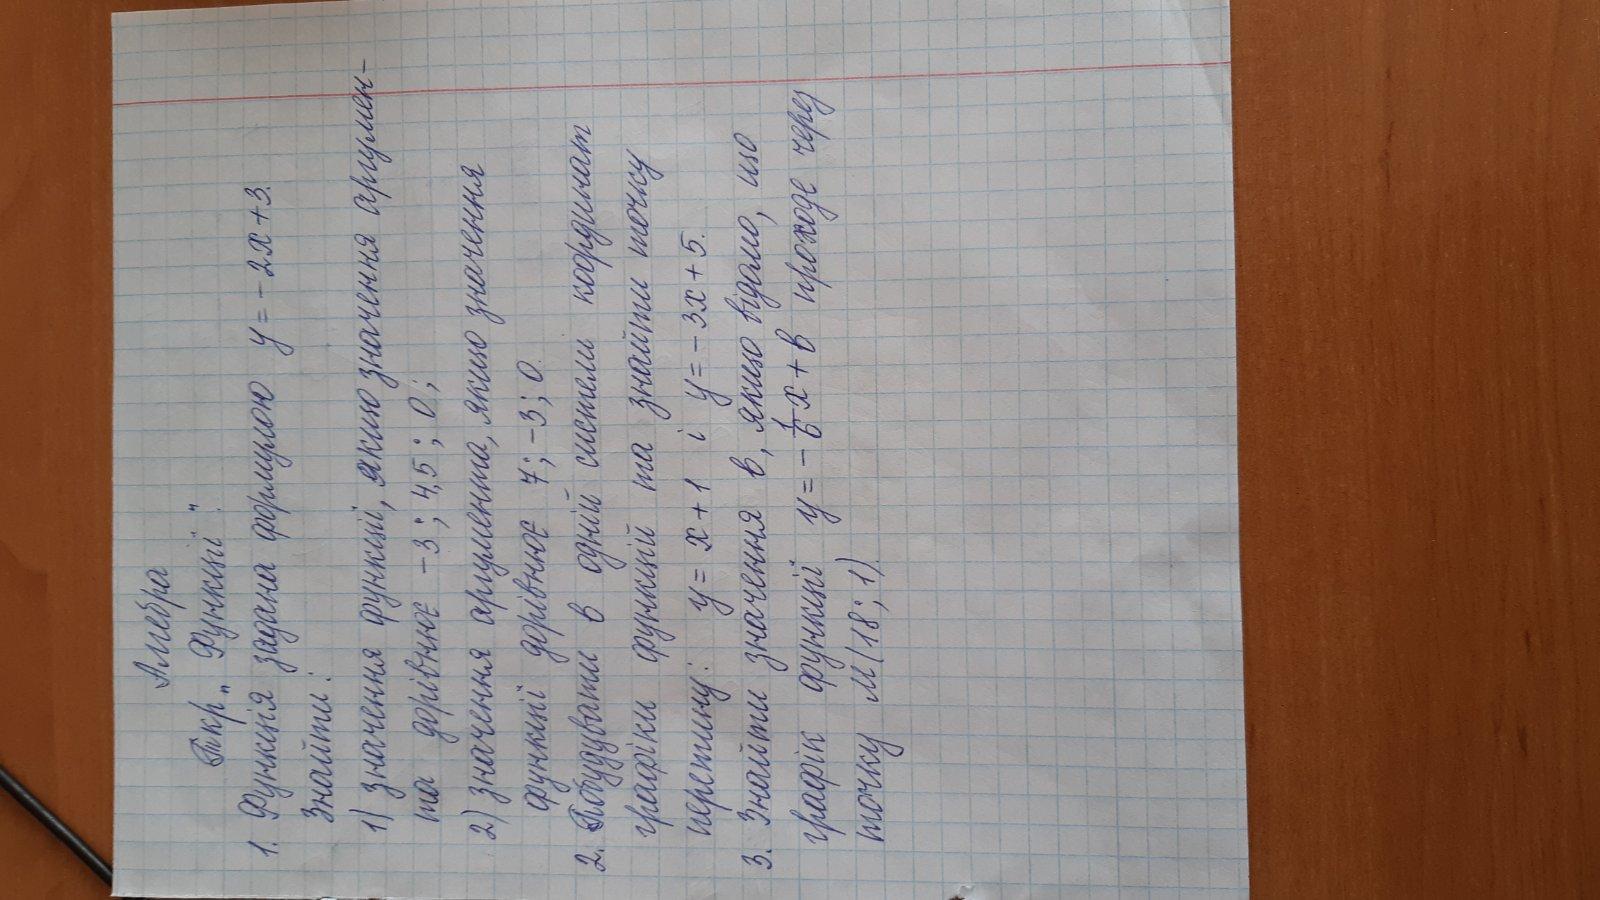 Алгебра
Ткр „Функції".
1. Функція задана формулою y = - 2x + 3.
Знайти:
1) значення функції, якщо значення аргумен-
та дорівнює -3; 4,5; 0;
2) значення аргумента, якщо значення
функції дорівнює 7; -3; 0.
2. Побудувати в одній системі координат
графіки функцій та знайти точку
перетину: y = x + 1 і y = - 3x + 5.
3. Знайти значення в, якщо відомо, що
графік функції y = - 1/6 x + в проходе через
точку М (18; 1).